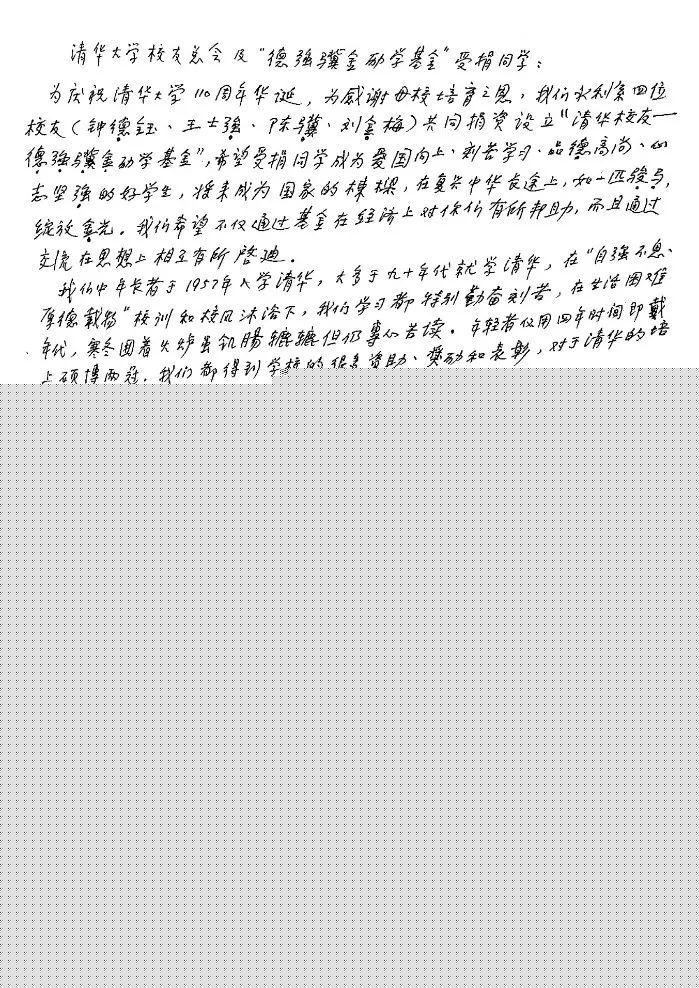 清华大学校友总会及“德强骥金励学基金”受捐同学：
为庆祝清华大学110周年华诞，为感谢母校培育之恩，我们水利系四位
校友（钟德钰、王士强、陈骥、刘金梅）共同捐资设立“清华校友—
德强骥金励学基金”，希望受捐同学成为爱国向上、刻苦学习、品德高尚、心
志坚强的好学生，将来成为国家的栋樑，在复兴中华长途上，如一匹骏马，
绽放金光。我们希望不仅通过基金在经济上对你们有所帮助，而且通过
交流在思想上相互有所启迪。
我们中年长者于1957年入学清华，大多于九十年代就学清华，在“自强不息、
厚德载物”校训和校风沐浴下，我们学习都特别勤奋刻苦，在生活困难
年代，寒冬围着火炉虽饥肠辘辘但仍专心苦读。年轻者仅用四年时间即戴
上硕博两冠。我们都得到学校的很多资助、奖励和表彰，对于清华的培